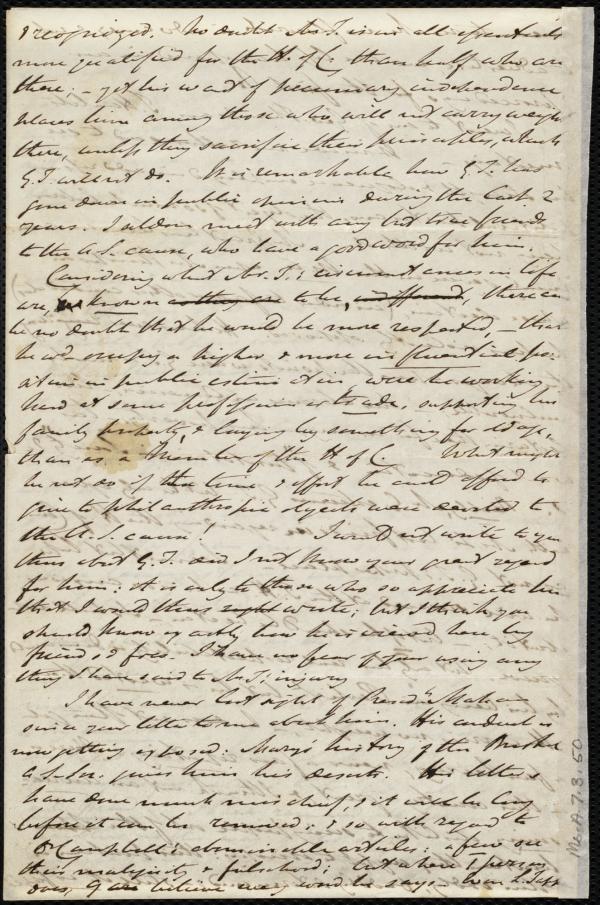 & recognized. No doubt Mr. T. is in all essentials
more qualified for the H. of C. than half who are
there; – yet his want of pecuniary independence
places him among those who will not carry weight
there, unless they sacrifice their principles, which
G.T. will not do. It is remarkable how G.T. has
gone down in public opinion during the last 2
years. I seldom meet with any but true friends
to the A.S. cause, who have a good word for him.
Considering what Mr. T.'s circumstances in life
are, known as they are to be, different, there can
be no doubt that he would be more respected, – that
he wd. occupy a higher & more influential po-
sition in public estimation, were he working
hard at some profession or trade, supporting his
family properly, & laying by something for old age,
than as a Member of the H of C. What might
he not do if the time & effort he could afford to
give to philanthropic objects were devoted to
the A.S. cause! I would not write to you
thus abt G.T. did I not know your great regard
for him: it is only to those who so appreciate him
that I would thus write; but I think you
should know exactly how he is viewed here by
friends & foes. I have no fear of your using any
thing I have said to Mr. T.'s injury
I have never lost sight of Presdt. Mahan
since your letter to me about him. His conduct is
now getting exposed: Mary's history of the Bristol
A.S. Soc. gives him his deserts. His letters
have done much mischief, & it will be long
before it can be removed; & so with regard to
Dr Campbell's abominable articles: a few see
their malignity & falsehood; but where 1 person
does, 9 are believe every word he says. Even L. Tapp